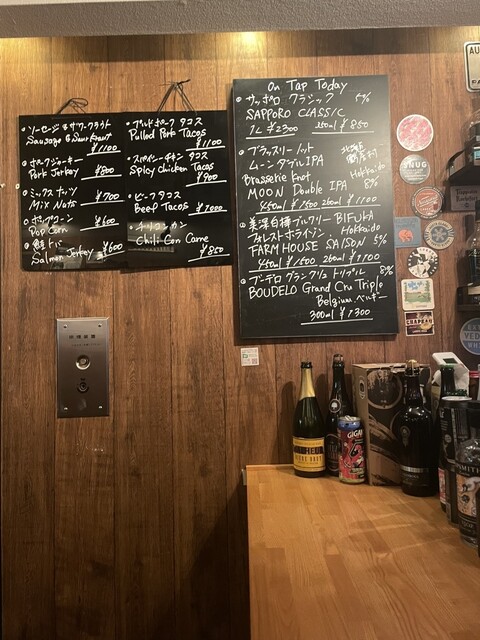 ・ソーセージ & ザワークラウト
Sausage & Sauer Kraut
¥1100
・ポークジャーキー
Pork Jerky ¥800
・ミックスナッツ
Mix Nuts ¥700
・ポップコーン
Pop Corn ¥600
・鮭トバ
Salmon Jerky ¥600
・プルドポークタコス
Pulled Pork Tacos
¥1100
・スパイシーチキン タコス
Spicy Chicken Tacos
¥900
・ビーフタコス
Beef Tacos ¥1000
・チリコンカン
Chili Con Carne
¥850
On Tap Today
・サッポロ クラシック 5%
SAPPORO CLASSIC
1L ¥2300 250ml ¥850
・ブラッスリーノット 北海道
ムーンダブルIPA
Brasserie Knot Hokkaido
MOON Double IPA 8%
450ml ¥1500 250ml ¥1100
・美深白樺ブルワリー BIFUKA
Hokkaido
FARM HOUSE SAISON 5%
450ml ¥1500 250ml ¥1100
・ブーデロ グランクリュ トリプル 8%
BOUDELO Grand Cru Triple
Belgium ベルギー
300ml ¥1300
GIGA